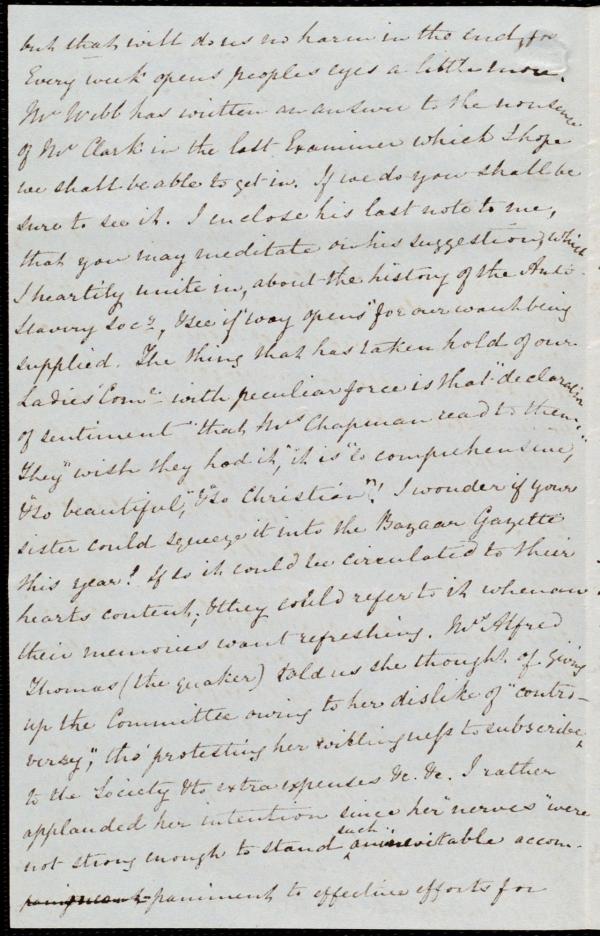 but that will do us no harm in the end, for
Every week opens peoples eyes a little more.
Mr Webb has written an answer to the nonsense
of Mr Clark in the last Examiner which I hope
we shall be able to get in. If we do you shall be
sure to see it. I enclose his last note to me,
that you may meditate on his suggestion, which
I heartily unite in, about the history of the Anti-
Slavery Socy, & see if "way opens" for our want being
supplied. The thing that has taken hold of our
Ladies' Come with peculiar force is that "declaration
of sentiment" that Mrs Chapman read to them.
They "wish they had it," it is "so comprehensive,"
"& so beautiful," "& so Christian"! I wonder if your
sister could squeeze it into the Bazaar Gazette
this year? If so it could be circulated to their
hearts content, & they could refer to it whenever
their memories want refreshing. Mrs Alfred
Thomas (the quaker) told us she thought of giving
up the Committee owing to her dislike of "contro-
versy", tho' protesting her willingness to subscribe
to the Society & to extra expenses &c. &c. I rather
applauded her intention since her "nerves" were
not strong enough to stand such inevitable accom-
paniment to effective efforts for